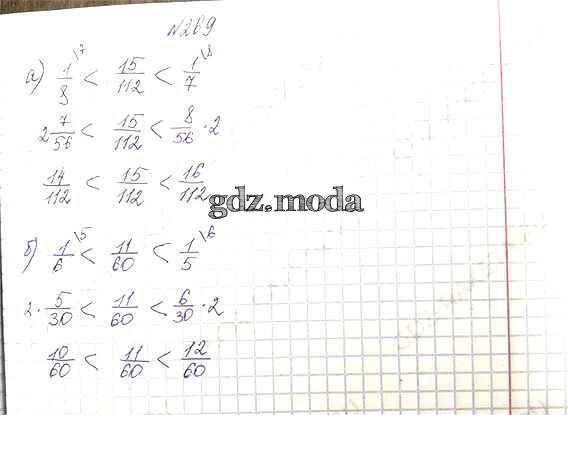 №269
а) 1/8 \7 < 15/112 < 1/7 \8
2 7/56 < 15/112 < 8/56 · 2
14/112 < 15/112 < 16/112
gdz.moda
б) 1/6 \5 < 11/60 < 1/5 \6
2 · 5/30 < 11/60 < 6/30 · 2
10/60 < 11/60 < 12/60